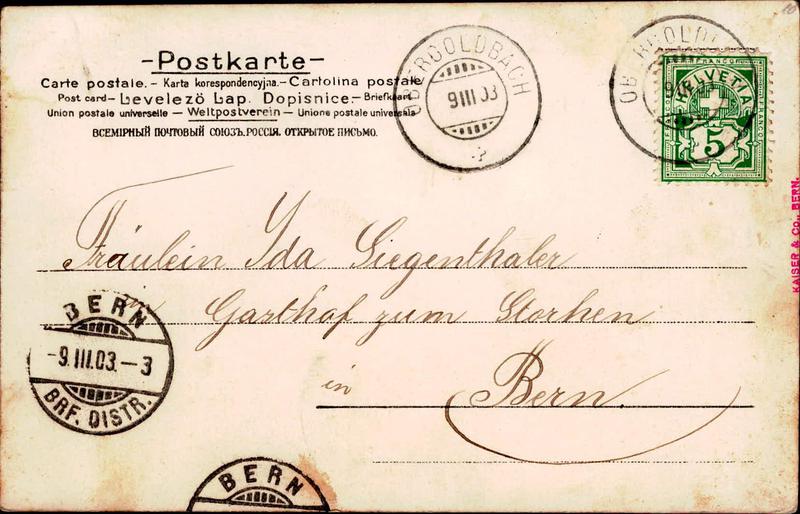 -Postkarte-
Carte postale. - Karta korespondencyjna. - Cartolina postale
Post card - Levelező Lap. Dopisnice. - Briefkaart
Union postale universelle - Weltpostverein - Unione postale universale
ВСЕМІРНЫЙ ПОЧТОВЫЙ СОЮЗЪ. РОССІЯ. ОТКРЫТОЕ ПИСЬМО.
OBERGOLDBACH
9 III 03
OBERGOLD
FRANCO
HELVETIA
5
FRANCO
KAISER & Co., BERN.
Fräulein Ida Siegenthaler
in
Gasthof zum Storhen
in Bern.
BERN
-9.III.03.-3
BRF. DISTR.
BERN